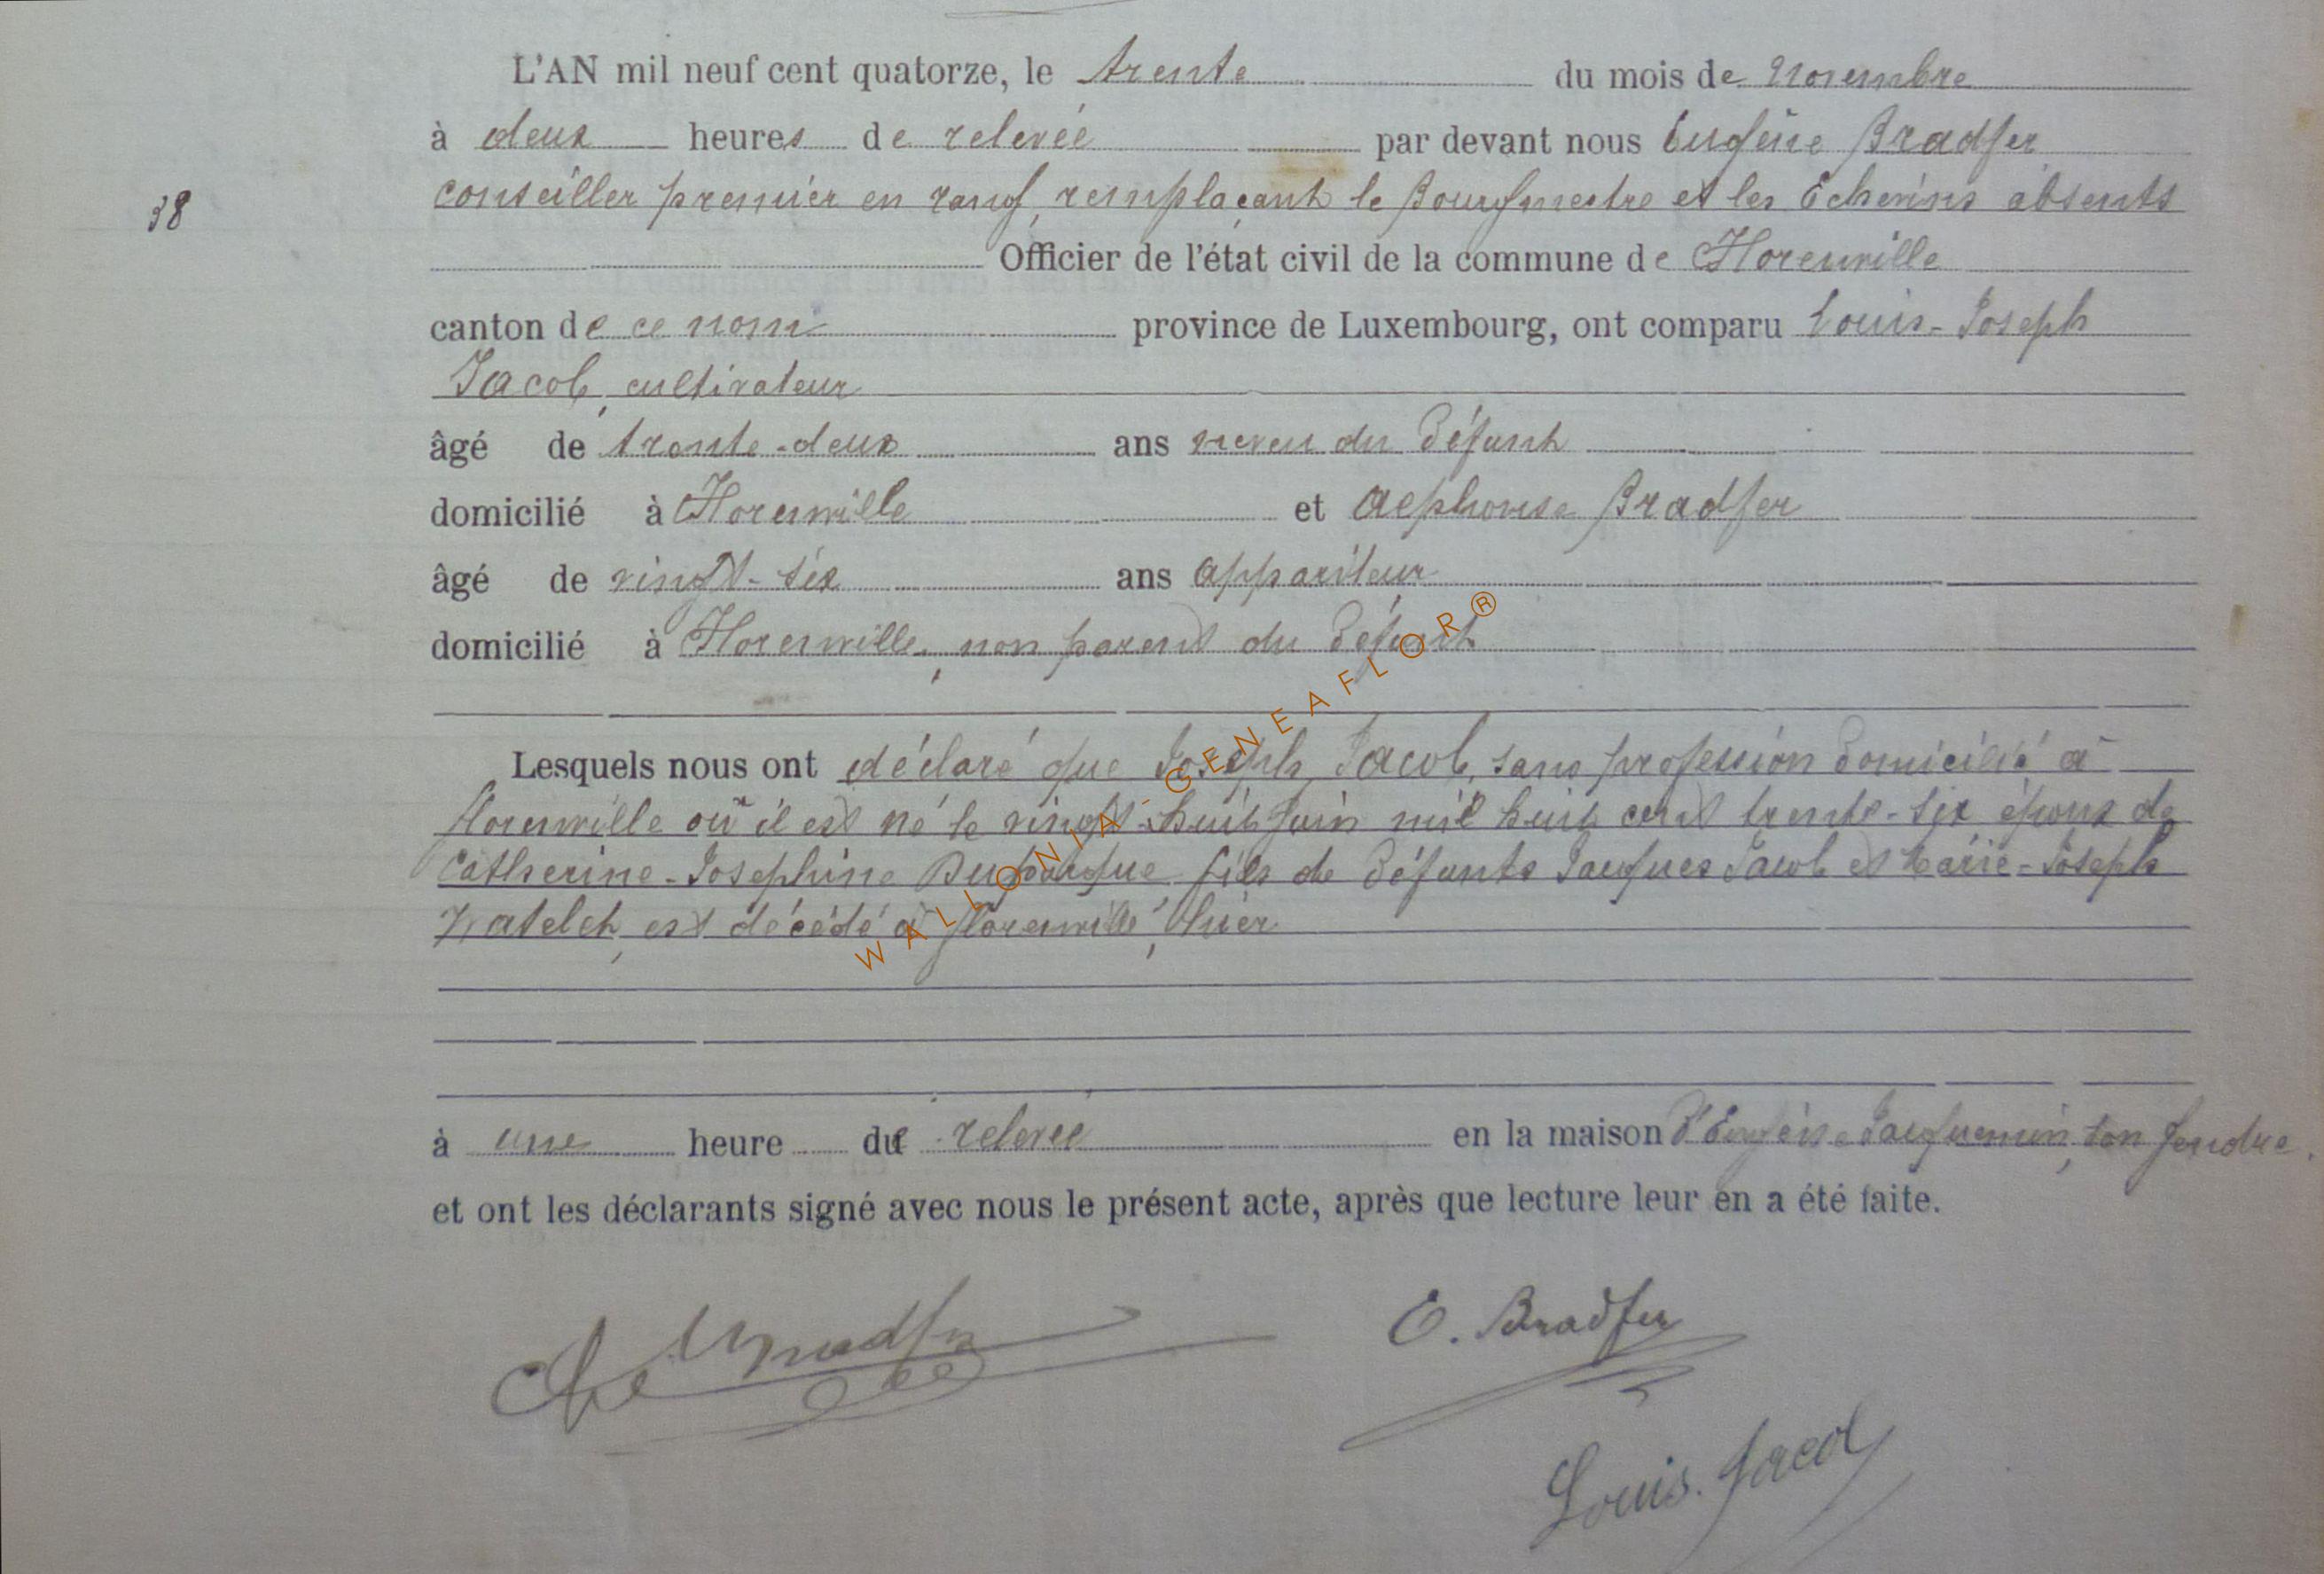 L'AN mil neuf cent quatorze, le trente du mois de Novembre
à deux heures de relevée par devant nous Eugène Bradfer
conseiller premier en rang, remplaçant le Bourgmestre et les Echevins absents
38
Officier de l'état civil de la commune de Florenville
canton de ce nom province de Luxembourg, ont comparu Louis-Joseph
Jacob, cultivateur
âgé de trente-deux ans neveu du défunt
domicilié à Florenville et Alphonse Bradfer
âgé de vingt-six ans appariteur
domicilié à Florenville, non parent du défunt
Lesquels nous ont déclaré que Joseph Jacob, sans profession domicilié à
Florenville où il est né le vingt-huit Juin mil huit cent trente-six époux de
Catherine-Josephine fils de défunts Jacques Jacob et Marie-Joseph
Watelet, est décédé à Florenville, hier
à une heure de relevée en la maison d'Eugène Jacquemin, son gendre.
et ont les déclarants signé avec nous le présent acte, après que lecture leur en a été faite.
Bradfer E. Bradfer
Louis. Jacob
WALLONIA - GENEAFLOR®